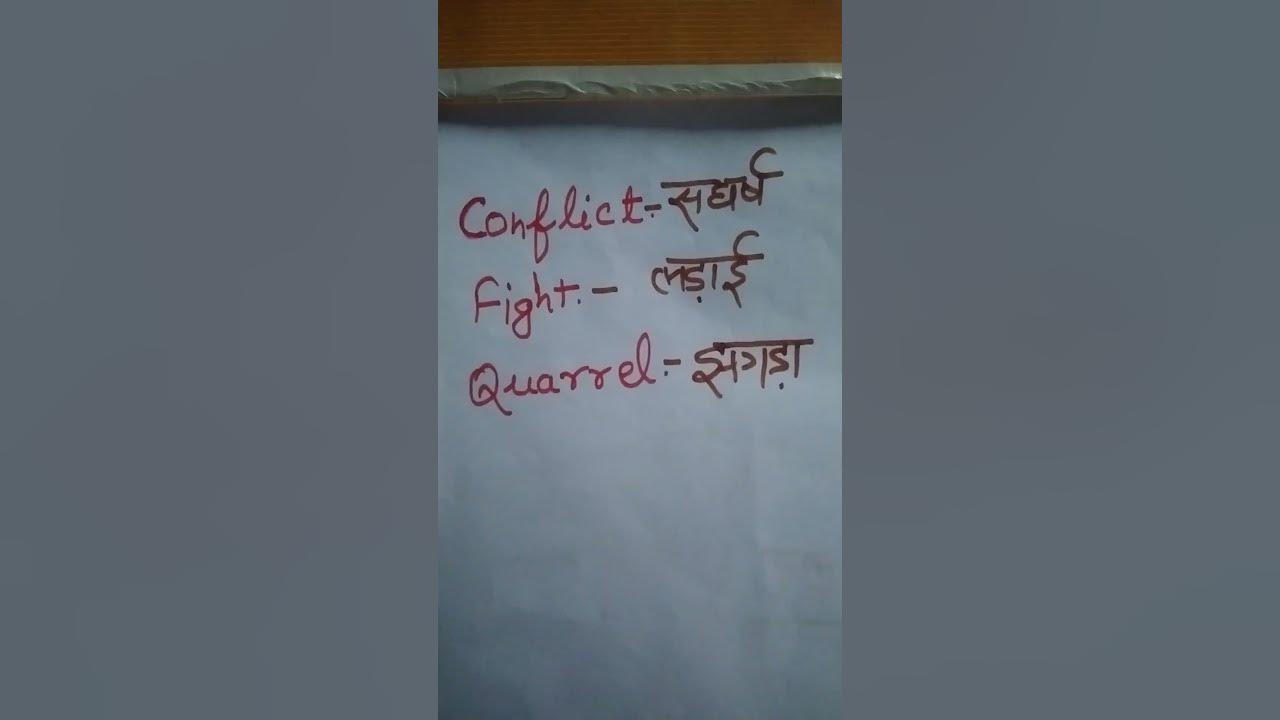 Conflict:- सघर्ष
Fight:- लड़ाई
Quarrel:- झगड़ा